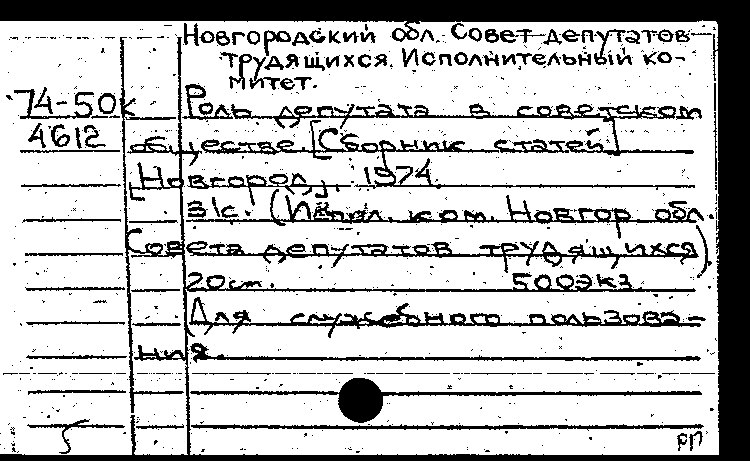 Новгородский обл. Совет депутатов
трудящихся. Исполнительный ко-
митет.
74-50к Роль депутата в советском
4612 обществе. [Сборник статей]
[Новгород], 1974.
31с. (Исполн. ком. Новгор обл.
Совета депутатов трудящихся)
20см. 500экз.
Для служебного пользова-
ния.
5 РП